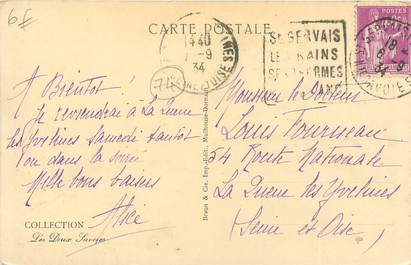 6f
CARTE POSTALE
1440
-9
34
ST GERVAIS
LES BAINS
19
-9
34
74
A Bientôt
Je reviendrai à La Queue
les Yvelines Samedi tantôt
ou dans la soirée
Mille bons baisers
Alice
COLLECTION
Les Deux Savoies
Braun & Cie, Imp.-Édit., Mulhouse-Dornach
Monsieur le Docteur
Louis
54 Route Nationale
La Queue les Yvelines
(Seine et Oise)